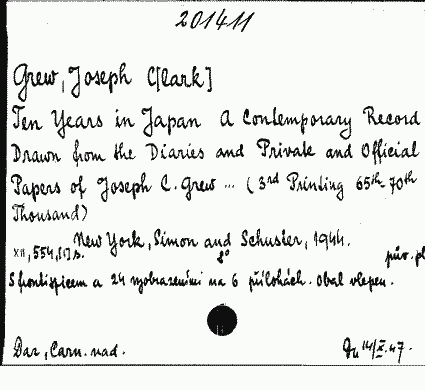 201411
Grew, Joseph C[lark]
Ten Years in Japan A Contemporary Record
Drawn from the Diaries and Private and Official
Papers of Joseph C. Grew ... (3rd Printing 65th-70th
Thousand)
New York, Simon and Schuster, 1944.
XII, 554, [1] s. 8° pův. pl
S frontispicem a 24 vyobrazeními na 6 přílohách. Obal vlepen.
Dar, Carn. nad. 14/X.47.